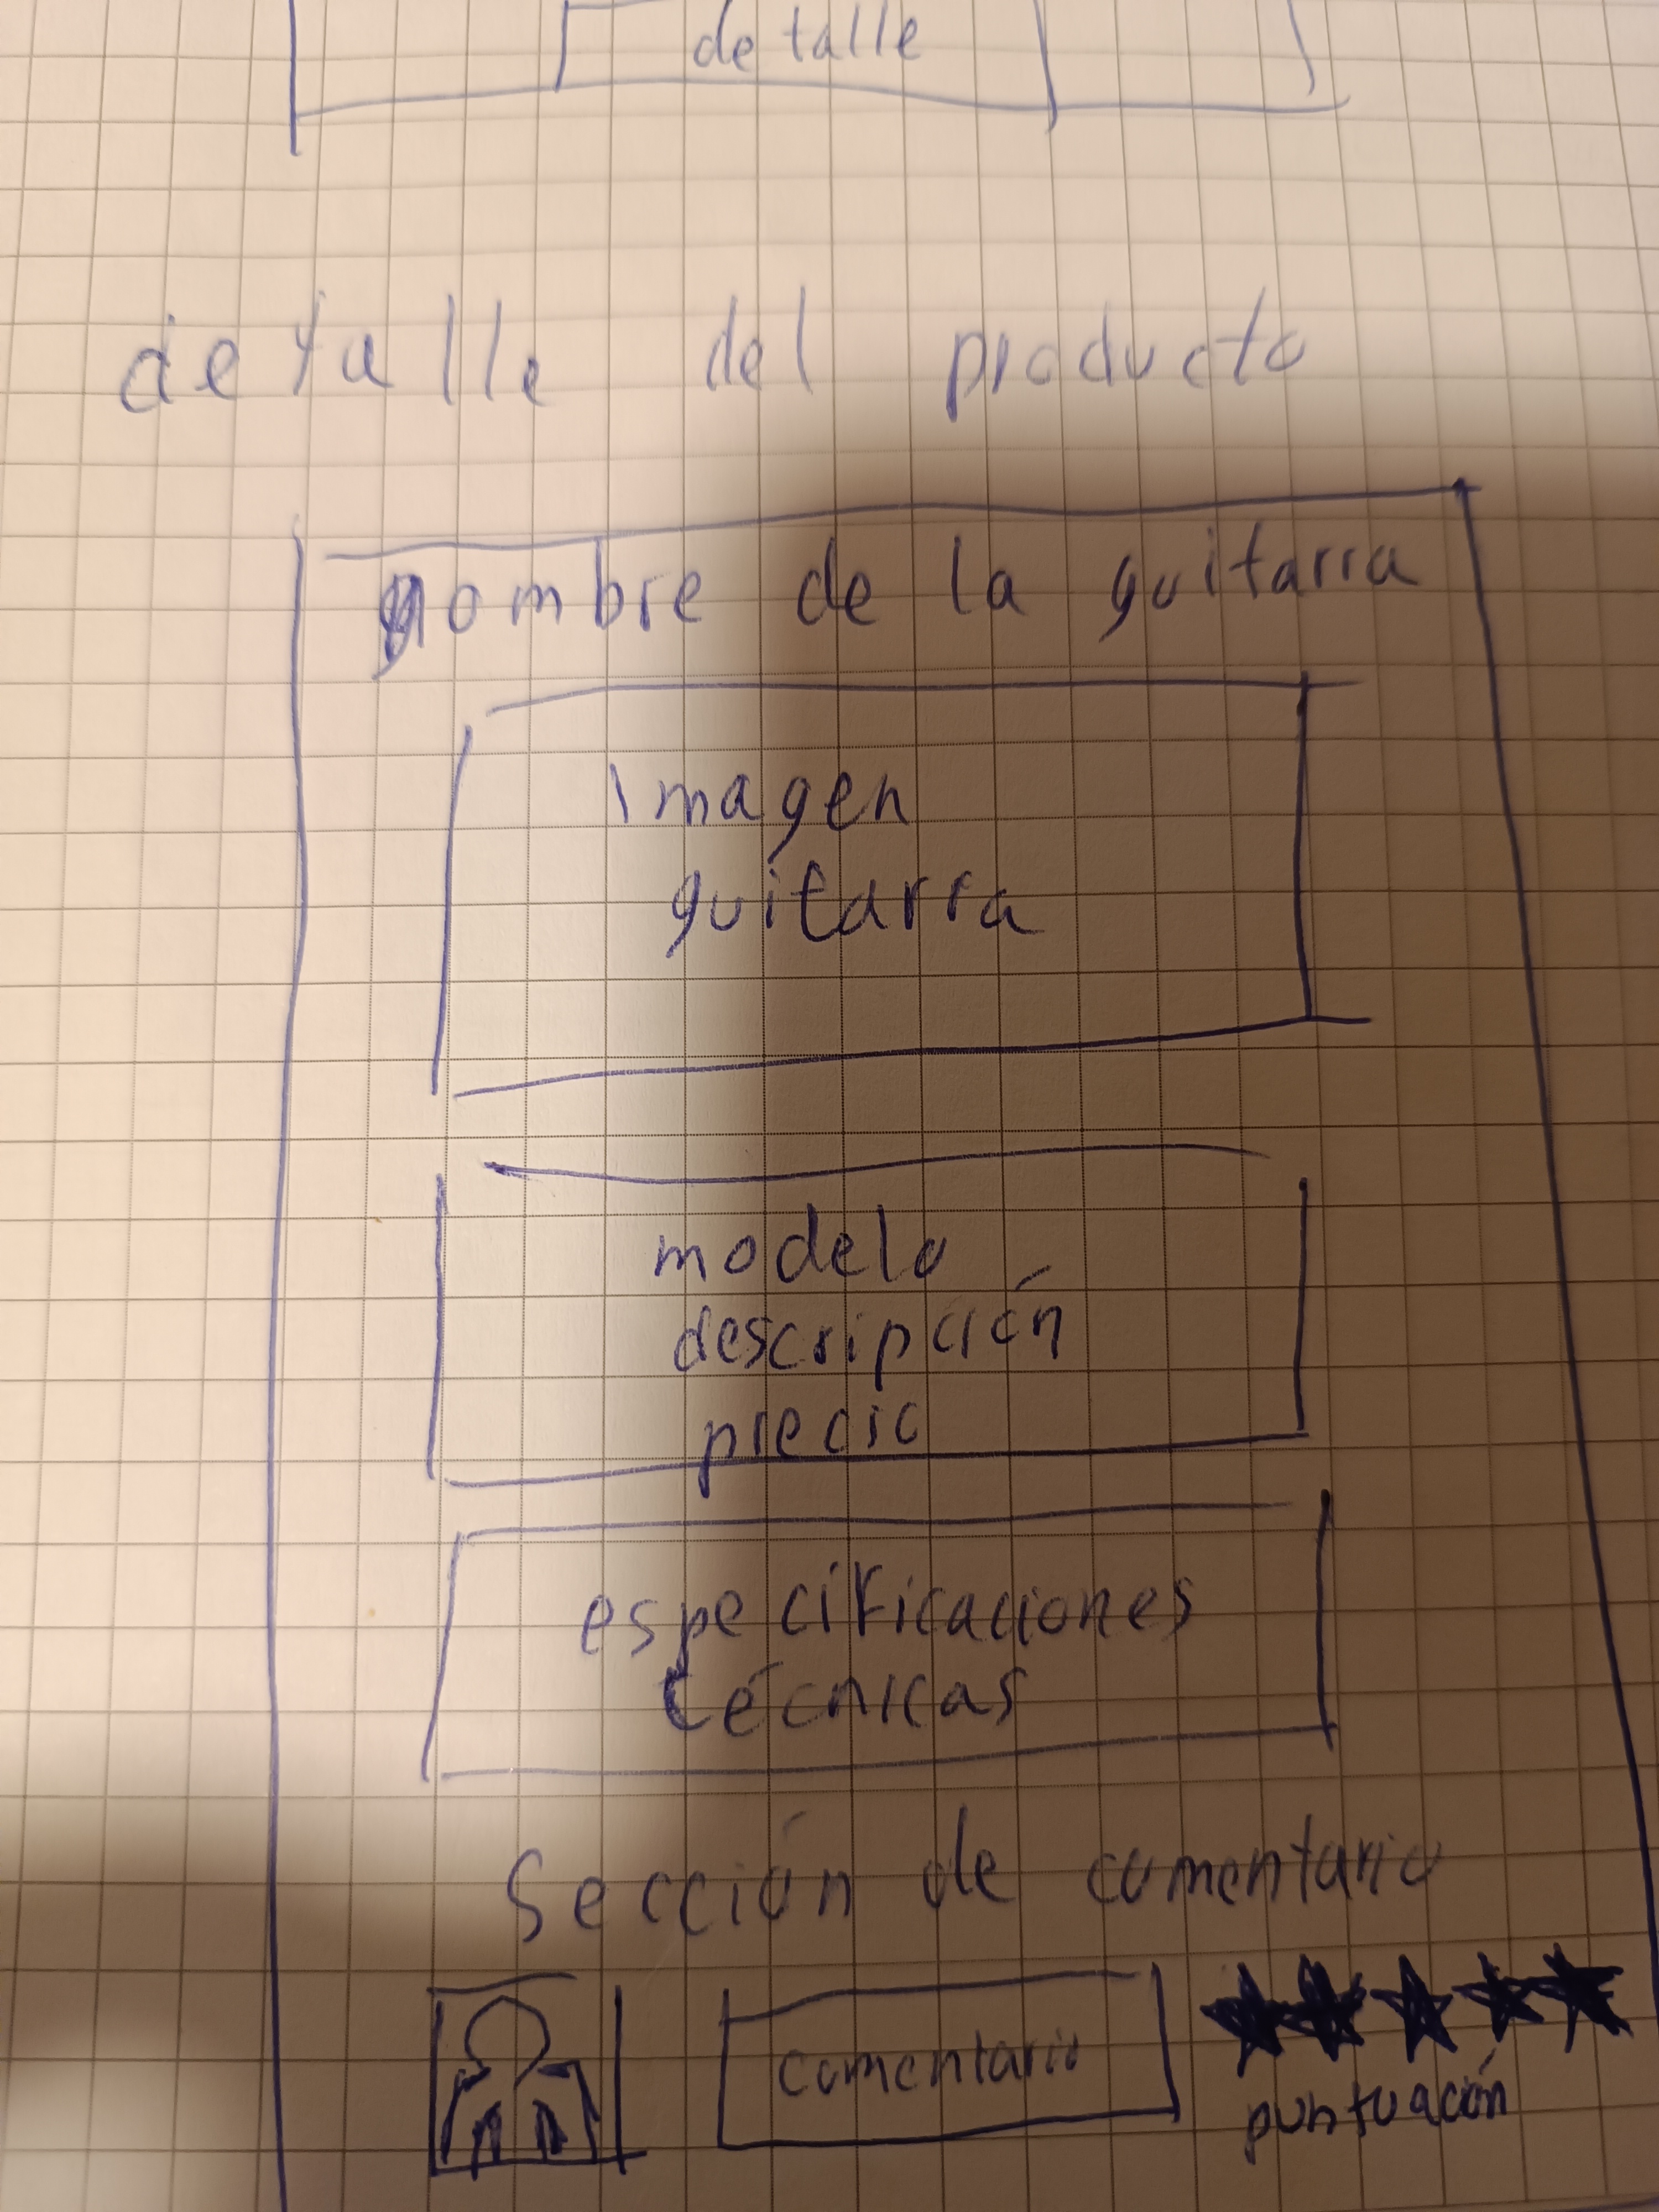 detalle
detalle del producto
nombre de la guitarra
imagen
guitarra
modelo
descripción
precio
especificaciones
técnicas
Sección de comentario
comentario
puntuación